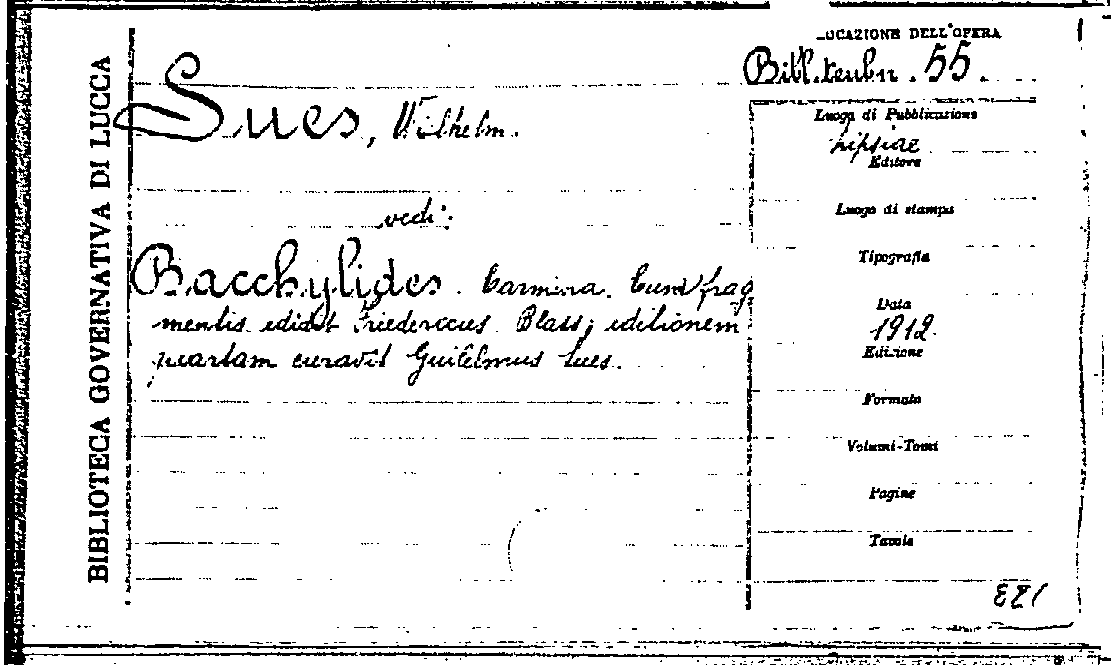 BIBLIOTECA GOVERNATIVA DI LUCCA
LOCAZIONE DELL'OPERA
Bibl. teubn. 55.
Sues, Wilhelm.
vedi:
Bacchylides. Carmina. Cum frag
mentis edidit Friedericus Blass; editionem
quartam curavit Guilelmus Sues.
Luogo di Pubblicazione
Lipsiae
Editore
Luogo di stampa
Tipografia
Data
1912
Edizione
Formato
Volumi-Tomi
Pagine
Tavole